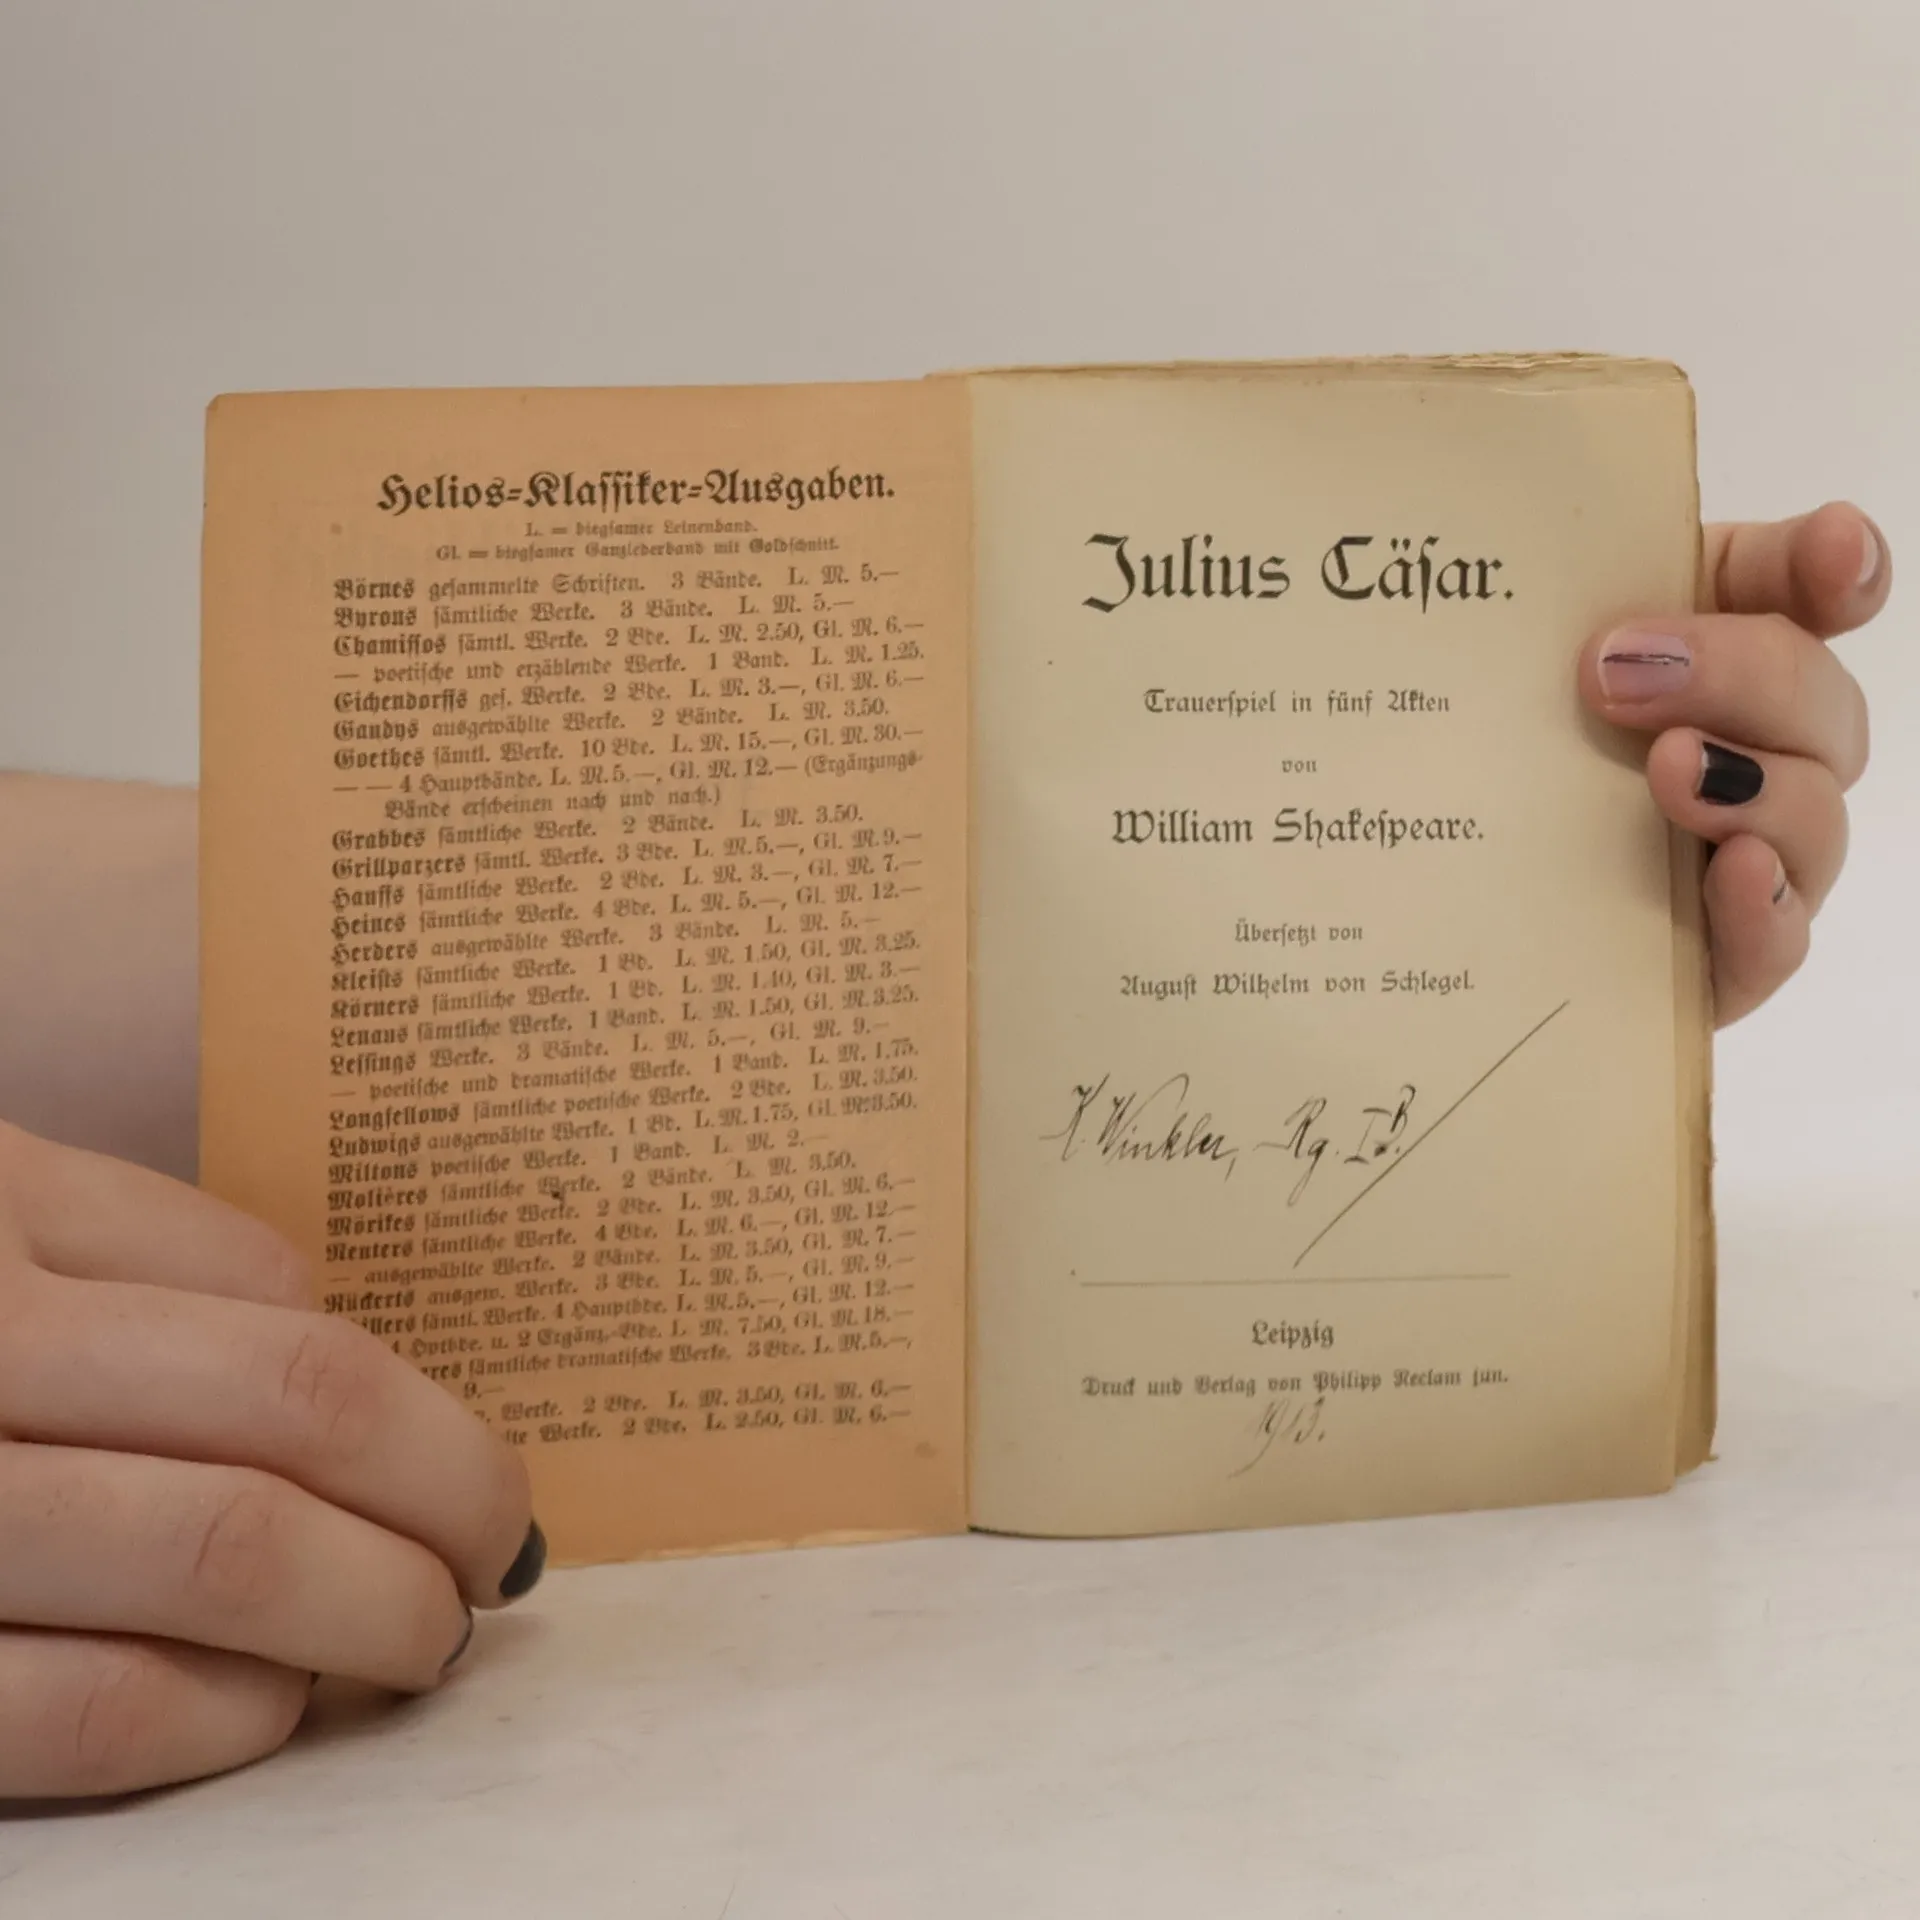 Helios-Klassiker-Ausgaben.
L. = biegsamer Leinenband.
Gl. = biegsamer Ganzlederband mit Goldschnitt.
Börnes gesammelte Schriften. 3 Bände. L. M. 5.—
Byrons sämtliche Werke. 3 Bände. L. M. 5.—
Chamissos sämtl. Werke. 2 Bde. L. M. 2.50, Gl. M. 6.—
— poetische und erzählende Werke. 1 Band. L. M. 1.25.
Eichendorffs ges. Werke. 2 Bde. L. M. 3.—, Gl. M. 6.—
Gaudys ausgewählte Werke. 2 Bände. L. M. 3.50.
Goethes sämtl. Werke. 10 Bde. L. M. 15.—, Gl. M. 30.—
— — 4 Hauptbände. L. M. 5.—, Gl. M. 12.— (Ergänzungs-
Bände erscheinen nach und nach.)
Grabbes sämtliche Werke. 2 Bände. L. M. 3.50.
Grillparzers sämtl. Werke. 3 Bde. L. M. 5.—, Gl. M. 9.—
Hauffs sämtliche Werke. 2 Bde. L. M. 3.—, Gl. M. 7.—
Heines sämtliche Werke. 4 Bde. L. M. 5.—, Gl. M. 12.—
Herders ausgewählte Werke. 3 Bände. L. M. 5.—
Kleists sämtliche Werke. 1 Bd. L. M. 1.50, Gl. M. 3.25.
Körners sämtliche Werke. 1 Bd. L. M. 1.40, Gl. M. 3.—
Lenaus sämtliche Werke. 1 Band. L. M. 1.50, Gl. M. 3.25.
Lessings Werke. 3 Bände. L. M. 5.—, Gl. M. 9.—
— poetische und dramatische Werke. 1 Band. L. M. 1.75.
Longfellows sämtliche poetische Werke. 2 Bde. L. M. 3.50.
Ludwigs ausgewählte Werke. 1 Bd. L. M. 1.75, Gl. M. 3.50.
Miltons poetische Werke. 1 Band. L. M. 2.—
Molières sämtliche Werke. 2 Bände. L. M. 3.50.
Mörikes sämtliche Werke. 2 Bde. L. M. 3.50, Gl. M. 6.—
Reuters sämtliche Werke. 4 Bde. L. M. 6.—, Gl. M. 12.—
— ausgewählte Werke. 2 Bände. L. M. 3.50, Gl. M. 7.—
Rückerts ausgew. Werke. 3 Bde. L. M. 5.—, Gl. M. 9.—
illers sämtl. Werke. 4 Hauptbde. L. M. 5.—, Gl. M. 12.—
4 Hptbde. u. 2 Ergänz.-Bde. L. M. 7.50, Gl. M. 18.—
res sämtliche dramatische Werke. 3 Bde. L. M. 5.—,
9.—
Werke. 2 Bde. L. M. 3.50, Gl. M. 6.—
lte Werke. 2 Bde. L. 2.50, Gl. M. 6.—
Julius Cäsar.
Trauerspiel in fünf Akten
von
William Shakespeare.
Übersetzt von
August Wilhelm von Schlegel.
K. Winkler, Rg. I B.
Leipzig
Druck und Verlag von Philipp Reclam jun.
1913.